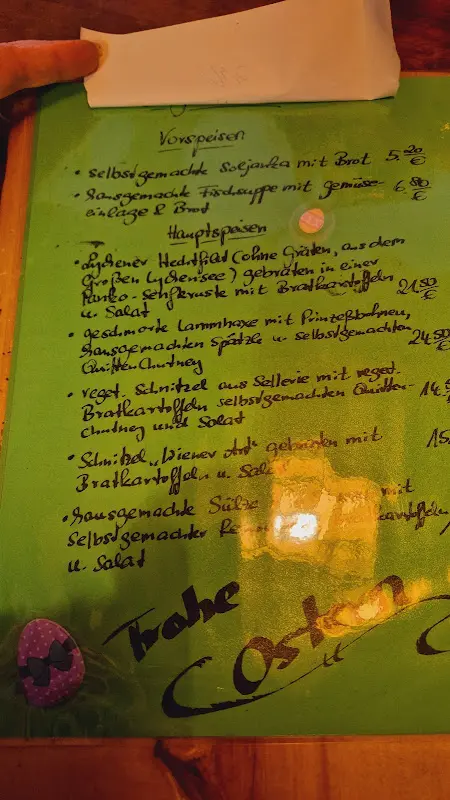 Vorspeisen
• selbstgemachte Soljanka mit Brot 5.20 €
• Hausgemachte Fischsuppe mit gemüse- 6.80 €
einlage & Brot
Hauptspeisen
• Lychener Hechtfilet (ohne Gräten, aus dem
Großen Lychensee) gebraten in einer
Panko-Senfkruste mit Bratkartoffeln 21.50 €
u. Salat
• geschmorte Lammhaxe mit Prinzeßbohnen,
Hausgemachten Spätzle u. selbstgemachten 24.50 €
Quitten Chutney
• veget. Schnitzel aus Sellerie mit veget.
Bratkartoffeln selbstgemachten Quitten- 14.
chutney und Salat
• Schnitzel "Wiener Art" gebraten mit 15
Bratkartoffeln u. Salat
• Hausgemachte Sülze mit
selbstgemachter
u. Salat
Frohe
Ostern